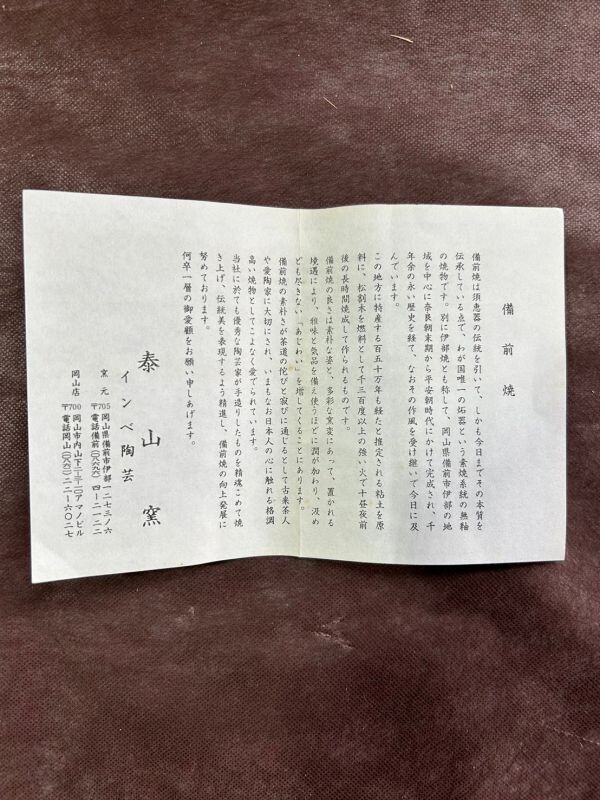 備前焼
備前焼は須恵器の伝統を引いて、しかも今日までその本質を
伝承している点で、わが国唯一の炻器という素焼系統の無釉
の焼物です。別に伊部焼とも称して、岡山県備前市伊部の地
域を中心に奈良朝末期から平安朝時代にかけて完成され、千
年余の永い歴史を経て、なおその作風を受け継いで今日に及
んでいます。
この地方に特産する百五十万年も経たと推定される粘土を原
料に、松割木を燃料として千三百度以上の強い火で十昼夜前
後の長時間焼成して作られるものです。
備前焼の良さは素朴な姿と、多彩な窯変にあって、置かれる
境遇により、雅味と気品を備え使うほどに潤が加わり、汲め
ども尽きない「あじわい」を増してくることにあります。
備前焼の素朴さが茶道の侘びと寂びに通じるとして古来茶人
や愛陶家に大切にされ、いまもなお日本人の心に触れる格調
高い焼物としてこよなく愛でられています。
当社に於ても優秀な陶芸家が手造りしたものを精魂こめて焼
き上げ、伝統美を表現するよう精進し、備前焼の向上発展に
努めております。
何卒一層の御愛顧をお願い申しあげます。
泰山窯
インベ陶芸
窯元 〒705 岡山県備前市伊部一二七三ノ六
電話備前(〇八六九六)四ー二一二二
岡山店 〒700 岡山市内山下二ー三ー一〇アマノビル
電話岡山(〇八六二)二二ー六〇二七